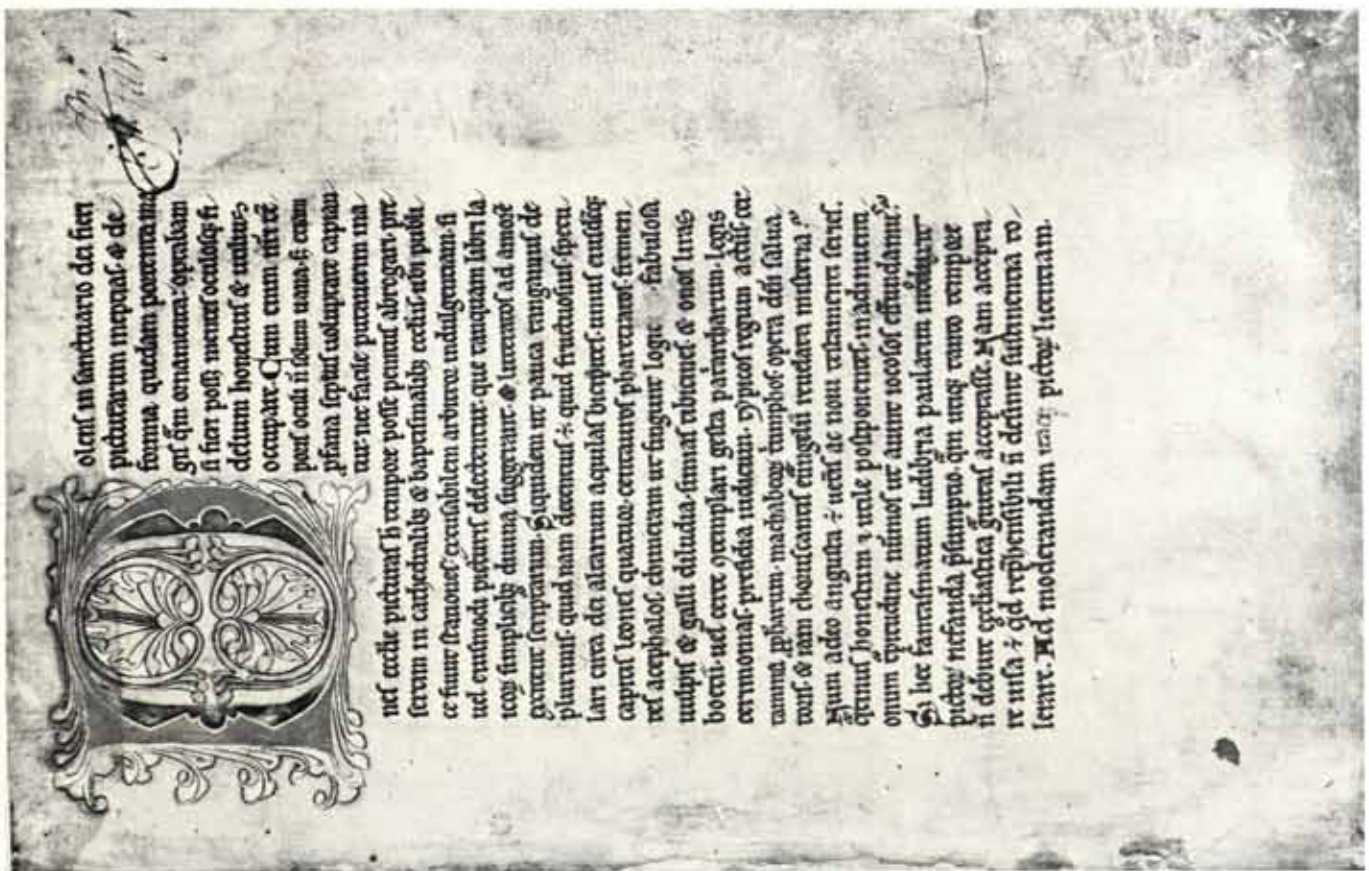 Dolens in sanctuario dei fieri
picturarum ineptias. & de
forma quedam portenta ma
gis q̃m ornamenta: optabam
si fieri poss; mentes oculosq; fi
delium honestius & utilius
occupare. Cum enim nr̃i tẽ
poris oculi ñ solum uana. s; etiam
p̃fana sepius uoluptate capian
tur. nec facile putauerim ina
nes ecclie picturas h̃ tempore posse penitus abrogari. pre
sertim in cathedralib; & baptismalib; ecclis. ubi publi
ce fiunt stationes: excusabilem arbitror indulgentiam. si
uel eiusmodi picturis delectentur. que tanquam libri la
icoꝝ simplicib; diuina suggerant. & litteratos ad amorẽ
scripturarum. Siquidem ut pauca tangamus de
plurimis. quid nam decentius. ÷ quid fructuosius. specu
lari circa dei altarium aquilas bicipites. unius eiusdẽq;
capitis leones quatuor. centauros pharetratos. fremen
tes acephalos. chimeram ut fingunt fabulosa
uulpis & galli diludia. simias tibicines. & onos liras
boetii. uel certe contemplari gesta patriarcharum. legis
cerimonias. presidia iudicum. typicos regum actus. cer
tamina p̃pharum. machabeoꝝ triumphos. opera dñi salua
toris. & iam choruscantis euãgelii reuelata misteria?
Num adeo angusta ÷ ueteris ac noui testamenti series.
honestum & utile postponentes. in adinuenti
onum ut aiunt iocosos effundamus?
Si hec fantasmatum ludibria
pictoꝝ nefanda p̃sumptio.
ñ debuit ecclesiastica acceptasse. Nam accepta
re uisa ÷ q̃d rep̃hensibili ñ desinit sustinentia to
lerare. Ad moderandam pictoꝝ licentiam.